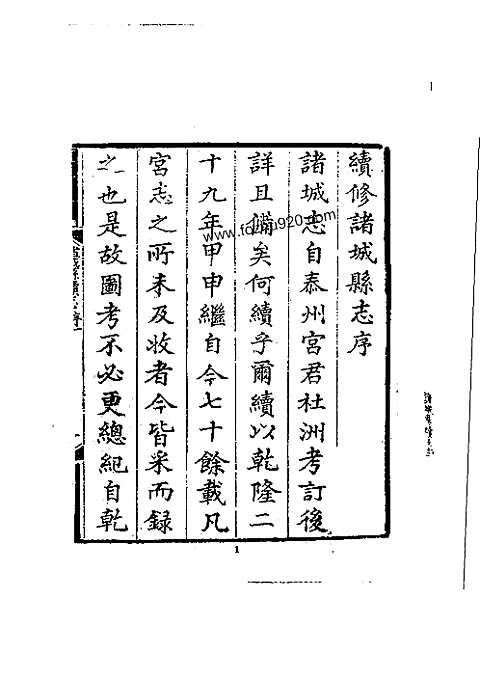 續修諸城縣志序
諸城志自泰州宮君杜洲考訂後
詳且備矣何續乎爾續以乾隆二
十九年甲申繼自今七十餘載凡
宮志之所未及收者今皆采而錄
之也是故圖考不必更總紀自乾
1
1